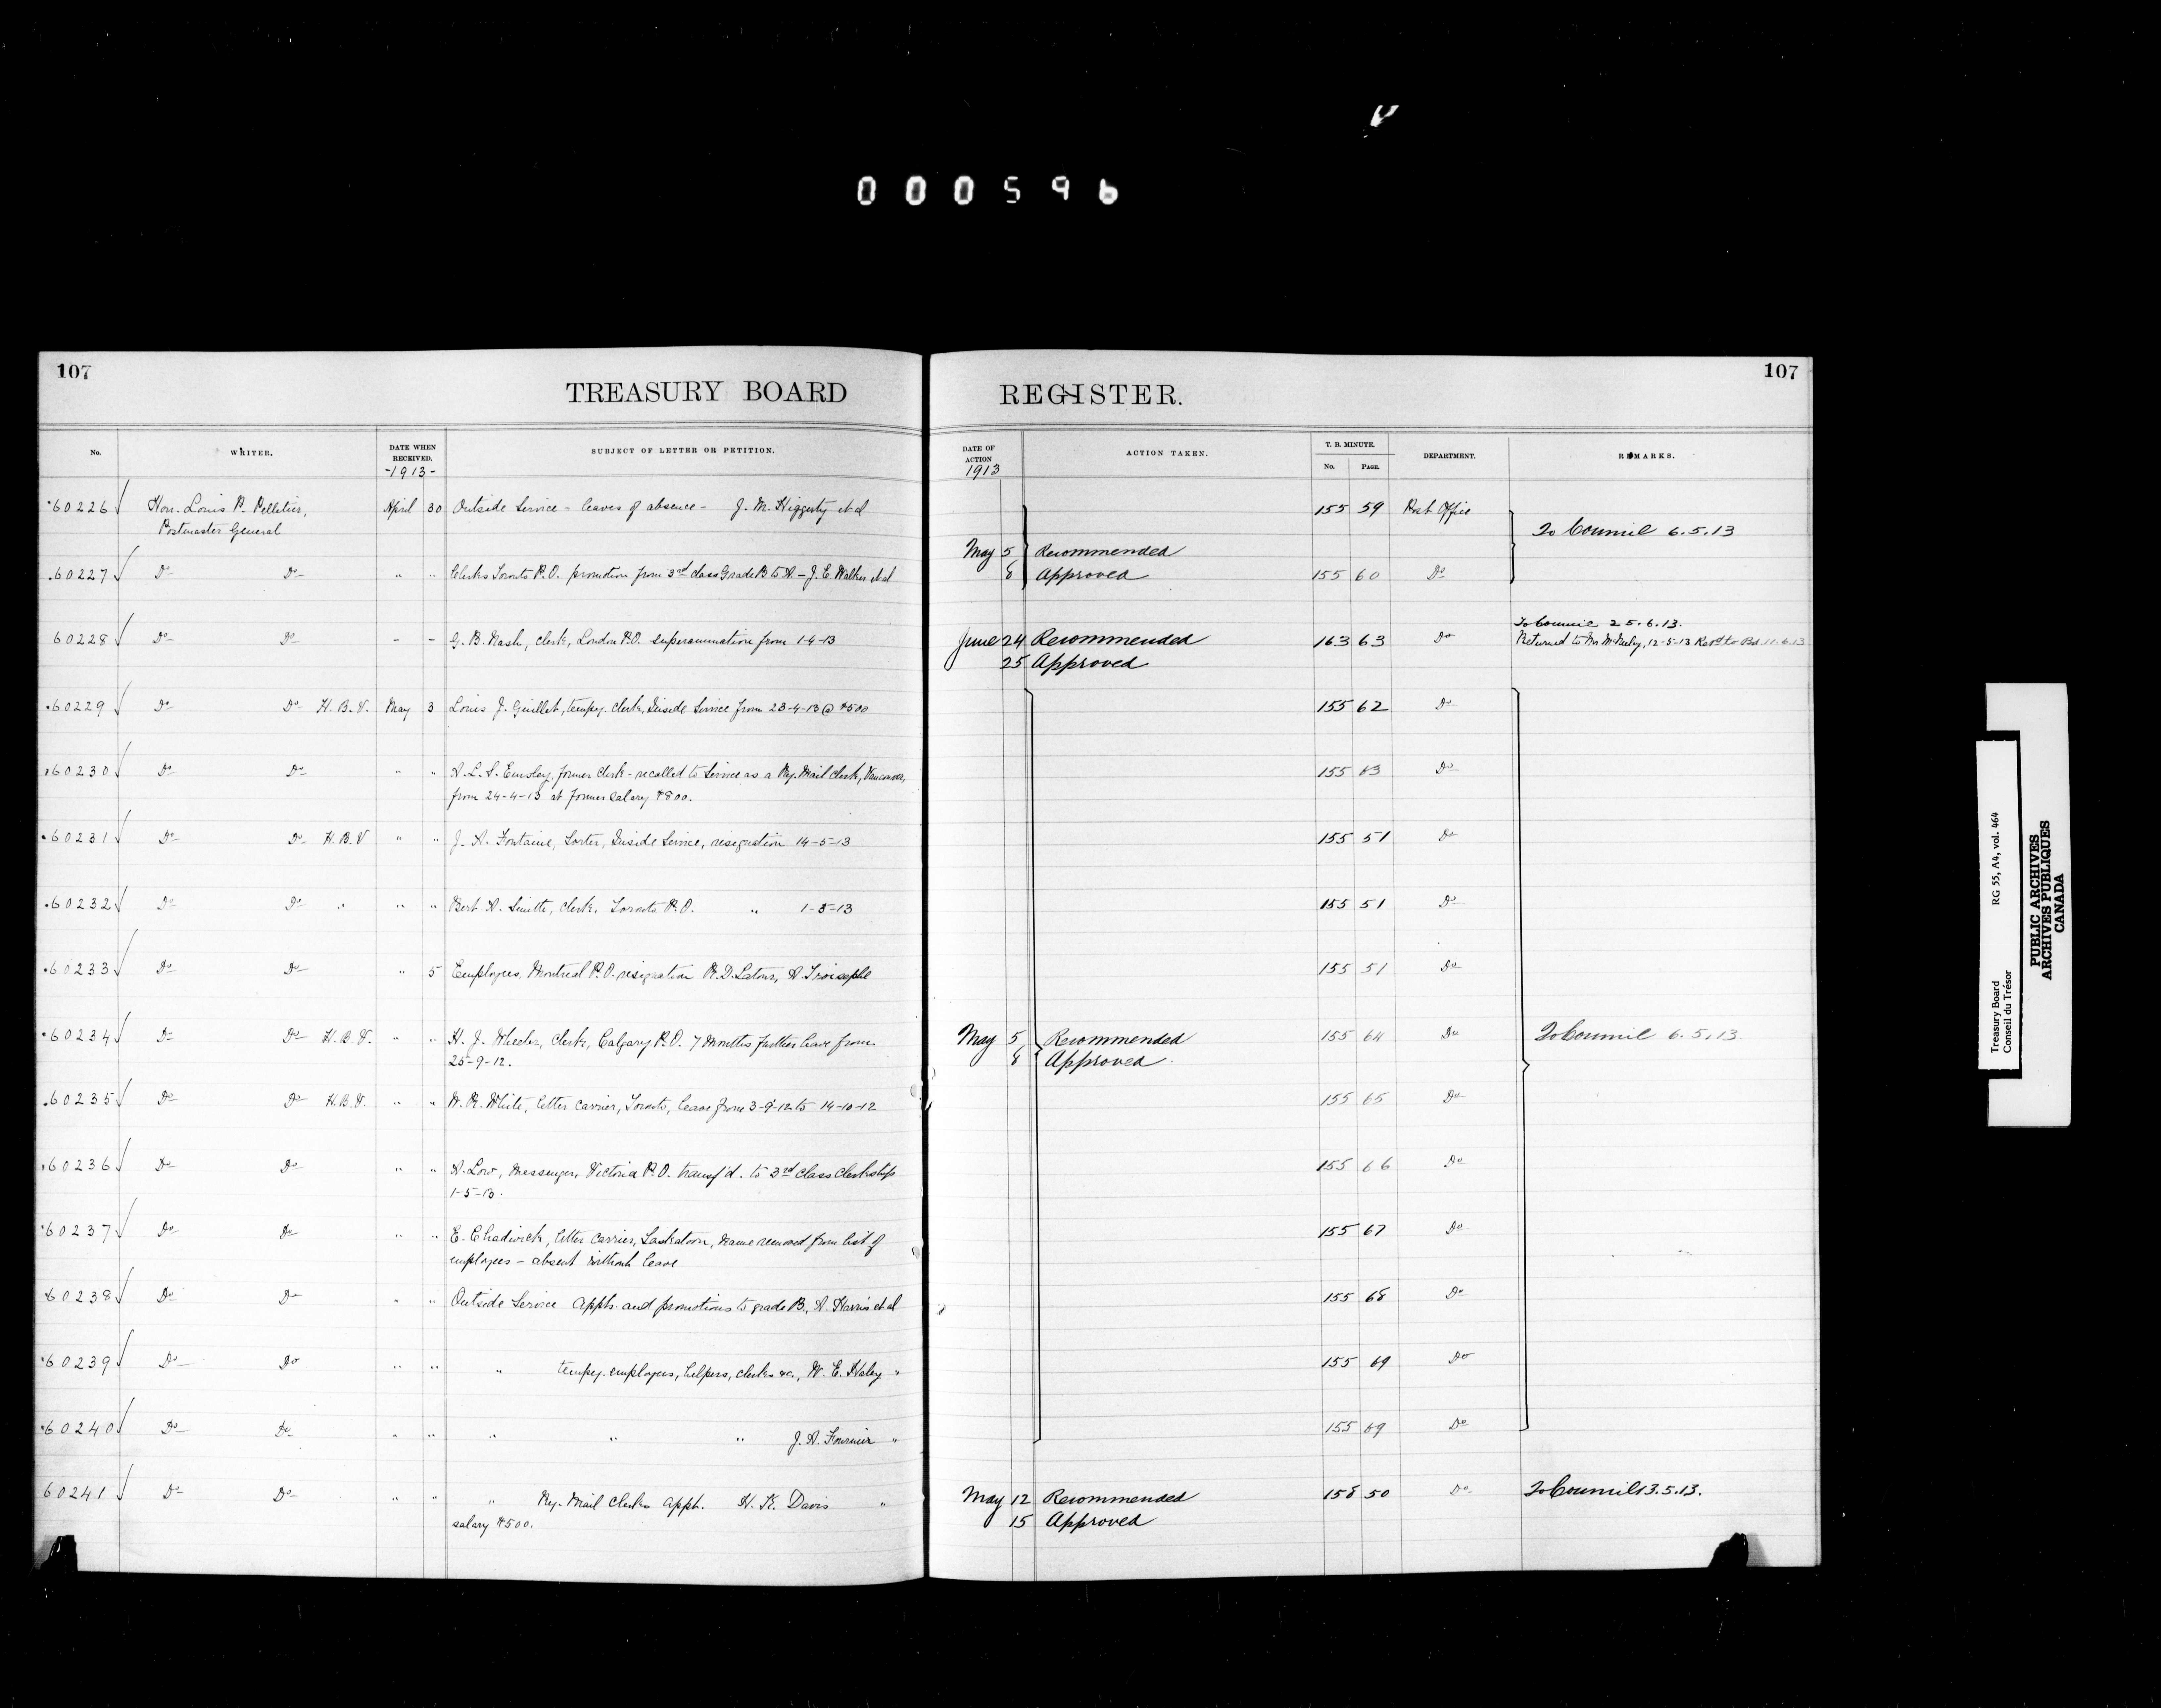 000596
107
TREASURY BOARD
No.
WRITER.
DATE WHEN RECEIVED.
-1913-
SUBJECT OF LETTER OR PETITION.
60226 Hon. Louis P. Pelletier, April 30 Outside Service - leaves of absence - J. M. Higgerty et al
Postmaster General
60227 Do Do " " Clerks Toronto P.O. promotion from 3rd class Grade B to A. - J. E. Walker et al
60228 Do Do - - G. B. Nash, clerk, London P.O. superannuation from 1-4-13
60229 Do Do H. B. V. May 3 Louis J. Guillet, tempy. clerk, Inside Service from 23-4-13 @ $500
60230 Do Do " " A. L. S. Emsley, former clerk - recalled to Service as a Ry. Mail Clerk, Vancouver,
from 24-4-13 at former salary $800.
60231 Do Do H. B. V " " J. A. Fontaine, Sorter, Inside Service, resignation 14-5-13
60232 Do Do " " " Bert A. Smith, Clerk, Toronto P.O. " 1-5-13
60233 Do Do " 5 Employees, Montreal P.O. resignation R. D. Latour, A.
60234 Do Do H. B. V. " " H. J. Wheeler, Clerk, Calgary P.O. 7 months further leave from
25-9-12.
60235 Do Do H. B. V. " " W. R. White, letter carrier, Toronto, leave from 3-9-12 to 14-10-12
60236 Do Do " " A. Low, Messenger, Victoria P.O. transf'd. to 3rd class Clerkship
1-5-13.
60237 Do Do " " E. Chadwick, letter carrier, Saskatoon, name removed from list of
employees - absent without leave
60238 Do Do " " Outside Service Appts. and promotions to grade B, A. Harris et al
60239 Do Do " " " tempy. employees, helpers, clerks &c., W. E. Haley "
60240 Do Do " " " " " J. A. Fournier "
60241 Do Do " " " Ry. Mail Clerks appt. H. K. Davis "
salary $500.
107
REGISTER.
DATE OF ACTION
1913
ACTION TAKEN.
T. B. MINUTE.
No. PAGE.
DEPARTMENT.
REMARKS.
155 59 Post Office
To Council 6.5.13
May 5 Recommended
8 Approved 155 60 Do
To Council 25.6.13.
June 24 Recommended 163 63 Do Returned to Mr 12-5-13 Retd to Bd. 11.6.13
25 Approved
155 62 Do
155 63 Do
155 51 Do
155 51 Do
155 51 Do
May 5 Recommended 155 64 Do To Council 6.5.13.
8 Approved
155 65 Do
155 66 Do
155 67 Do
155 68 Do
155 69 Do
155 69 Do
May 12 Recommended 158 50 Do To Council 13.5.13.
15 Approved
Treasury Board RG 55, A4, vol. 464
Conseil du Trésor
PUBLIC ARCHIVES
ARCHIVES PUBLIQUES
CANADA